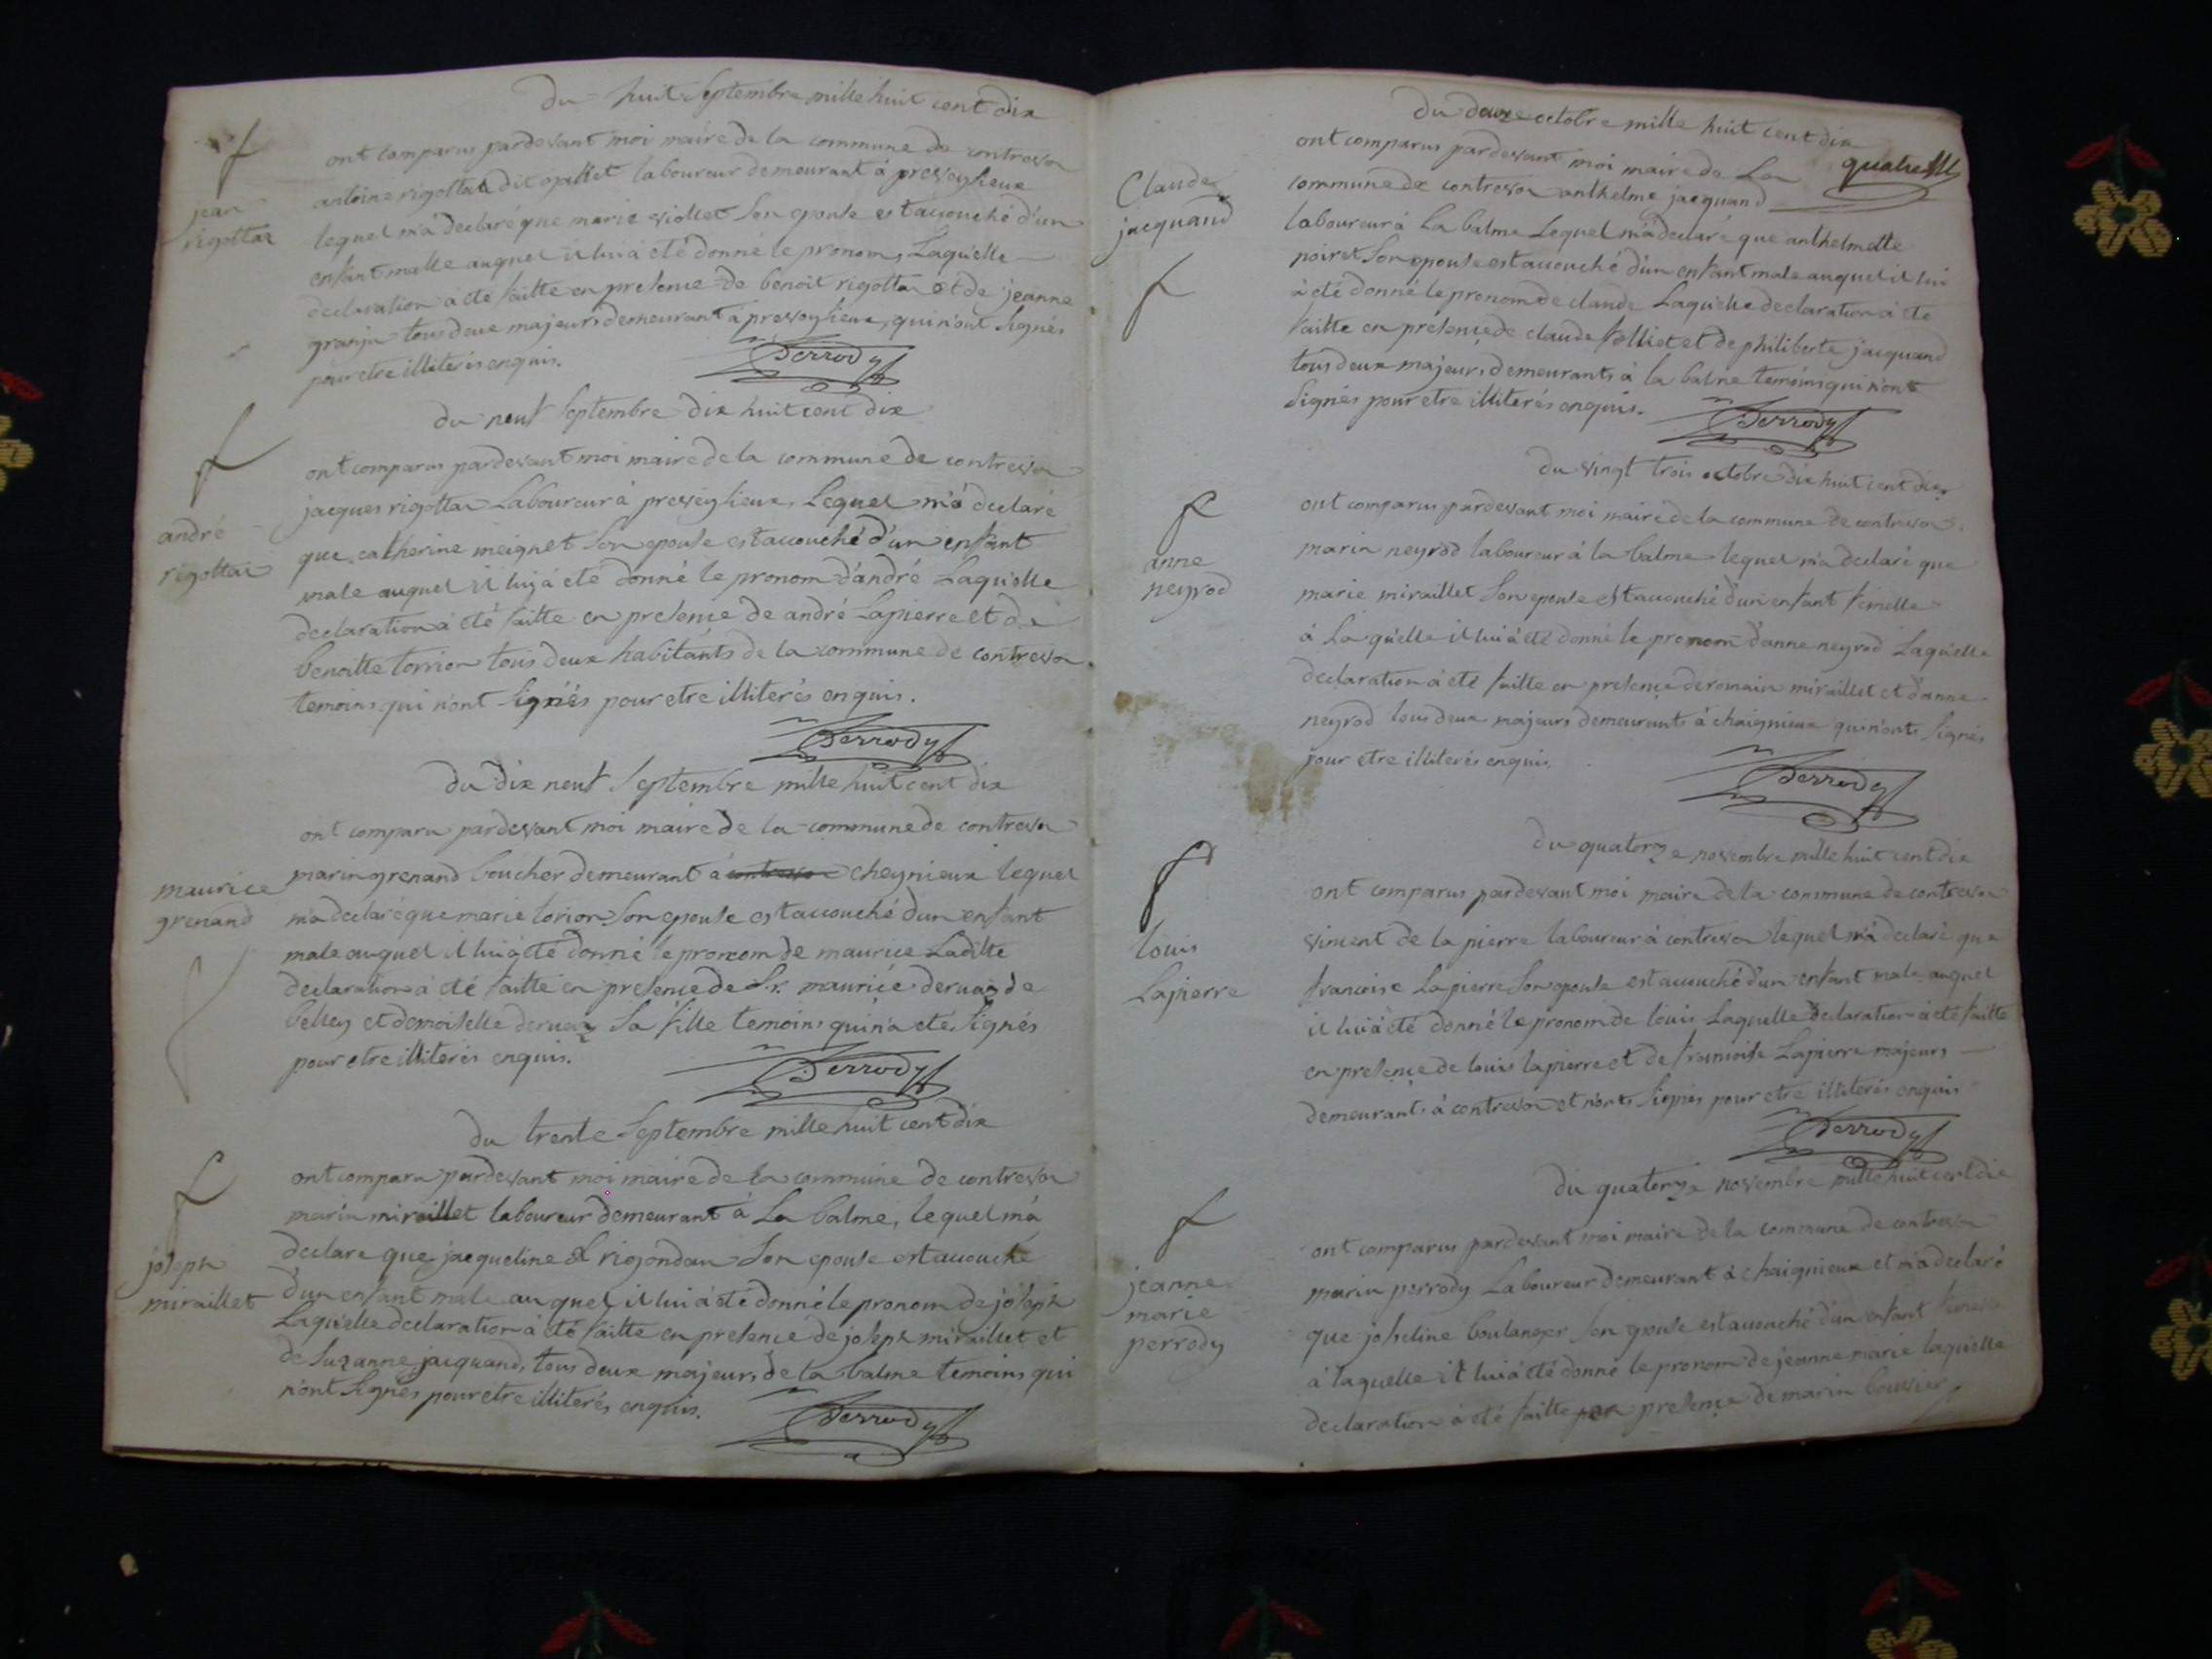 du huit Septembre mille huit cent dix
ont comparus pardevant moi maire de la commune de contrevon
antoine rigottat dit opallet laboureur demeurant à presveyhieux
jean
rigottat
lequel m'a declaré que marie viollet son epouse est accouché d'un
enfant malle auquel il lui à été donné le pronom, Laquelle
declaration à été faitte en presence de benoit rigottat et de jeanne
granju tous deux majeurs demeurant à presveyhieux, qui n'ont signés
pour etre illiterés enquis.
Perrody
du neuf septembre dix huit cent dix
ont comparus pardevant moi maire de la commune de contrevon
jacques rigottat Laboureur à presveyhieux, Lequel m'à declaré
andré
rigottat
que catherine meignet son epouse est accouché d'un enfant
male auquel il luy à été donné le pronom d'andré Laquelle
declaration à été faitte en presence de andré Lapierre et de
benoitte torrion tous deux habitants de la commune de contrevon
temoins qui n'ont signés pour etre illiterés enquis.
Perrody
du dix neuf Septembre mille huit cent dix
ont comparu pardevant moi maire de la commune de contrevon
marin grenand boucher demeurant à contrevon cheynieux lequel
maurice
grenand
m'a declaré que marie torion son epouse est accouché d'un enfant
male auquel il lui à été donné le pronom de maurice Laditte
declaration à été faitte en presence de Sr. maurice dervaz de
belley et demoiselle dervaz sa fille temoins qui n'a eté signés
pour etre illiterés enquis.
Perrody
du trente Septembre mille huit cent dix
ont comparu pardevant moi maire de la commune de contrevon
marin miraillet laboureur demeurant à La balme, lequel m'a
declare que jacqueline rigondau son epouse est accouché
joseph
miraillet
d'un enfant male auquel il lui à été donné le pronom de joseph
Laquelle declaration à été faitte en presence de joseph miraillet et
de Suzanne jacquand, tous deux majeurs de la balme temoins qui
n'ont signés pour etre illiterés enquis.
Perrody
du douze octobre mille huit cent dix
quatre
ont comparus pardevant moi maire de La
commune de contrevon anthelme jacquand
Claude
jacquand
laboureur à La balme Lequel m'a declaré que anthelmette
poiret son epouse est accouché d'un enfant male auquel il lui
à été donné le pronom de claude Laquelle declaration à été
faitte en presence de claude folliet et de philiberte jacquand
tous deux majeurs demeurants à la balme temoins qui n'ont
signés pour etre illiterés enquis.
Perrody
du vingt trois octobre dix huit cent dix
ont comparus pardevant moi maire de la commune de contrevon
anne
neyrod
marin neyrod laboureur à la balme lequel m'a declaré que
marie miraillet son epouse est accouché d'un enfant femelle
à Laquelle il lui à été donné le pronom d'anne neyrod Laquelle
declaration à été faitte en presence de romain miraillet et d'anne
neyrod tous deux majeurs demeurants à chaignieux qui n'ont signés
pour etre illiterés enquis.
Perrody
du quatorze novembre mille huit cent dix
ont comparus pardevant moi maire de la commune de contrevon
louis
Lapierre
vincent de la pierre laboureur à contrevon lequel m'à declaré que
francoise Lapierre son epouse est accouché d'un enfant male auquel
il lui à été donné le pronom de louis Laquelle declaration à été faitte
en presence de louis lapierre et de francoise Lapierre majeurs
demeurants à contrevon et n'ont signés pour etre illiterés enquis
Perrody
du quatorze novembre mille huit cent dix
ont comparus pardevant moi maire de la commune de contrevon
jeanne
marie
perrody
marin perrody Laboureur demeurant à chaignieux et m'a declaré
que josseline boulanger son epouse est accouché d'un enfant
à laquelle il lui à été donné le pronom de jeanne marie laquelle
declaration à été faitte presence de marin bouvier